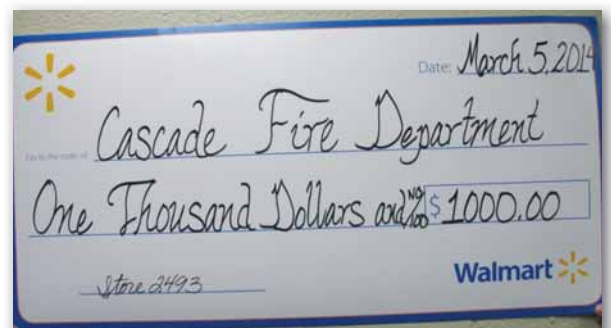 Date: March 5, 2014
Pay to the order of Cascade Fire Department
One Thousand Dollars and No/100 $ 1000.00
Store 2493
Walmart